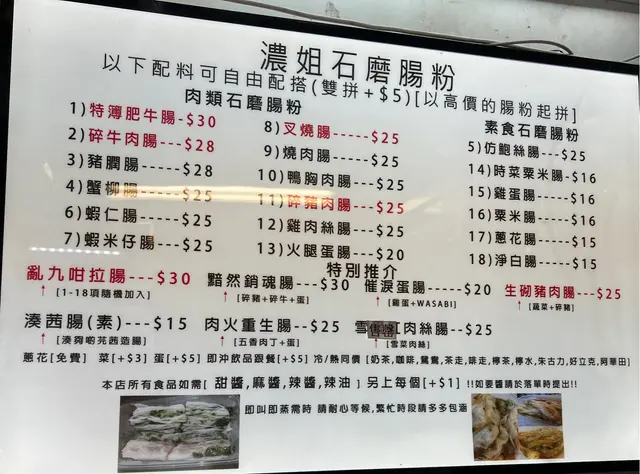 濃姐石磨腸粉
以下配料可自由配搭(雙拼+$5)[以高價的腸粉起拼]
肉類石磨腸粉
1)特薄肥牛腸-$30
2)碎牛肉腸---$28
3)豬膶腸-----$28
4)蟹柳腸-----$25
6)蝦仁腸-----$25
7)蝦米仔腸---$25
8)叉燒腸-----$25
9)燒肉腸-----$25
10)鴨胸肉腸--$25
11)碎豬肉腸--$25
12)雞肉絲腸--$25
13)火腿蛋腸--$20
素食石磨腸粉
5)仿鮑絲腸---$25
14)時菜粟米腸-$16
15)雞蛋腸----$16
16)粟米腸----$16
17)蔥花腸----$15
18)淨白腸----$15
特別推介
亂九咁拉腸---$30
↑[1-18項隨機加入]
黯然銷魂腸---$30
↑[碎豬+碎牛+蛋]
催淚蛋腸-----$20
↑[雞蛋+WASABI]
生砌豬肉腸---$25
↑[蔬菜+碎豬]
湊茜腸(素)---$15
↑[湊夠啲芫茜造腸]
肉火重生腸--$25
↑[五香肉丁+蛋]
雪 紅肉絲腸--$25
↑[雪菜肉絲]
蔥花[免費] 菜[+$3] 蛋[+$5] 即沖飲品跟餐[+$5] 冷/熱同價 [奶茶,咖啡,鴛鴦,茶走,啡走,檸茶,檸水,朱古力,好立克,阿華田]
本店所有食品如需[ 甜醬,麻醬,辣醬,辣油 ] 另上每個[+$1] !!如要醬請於落單時提出!!
即叫即蒸需時 請耐心等候,繁忙時段請多多包涵